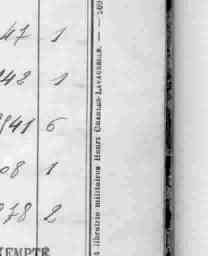 47 1
48 1
941 6
08 1
978 2
librairie militaires Henri CHARLES-LAVAUZELLE. —